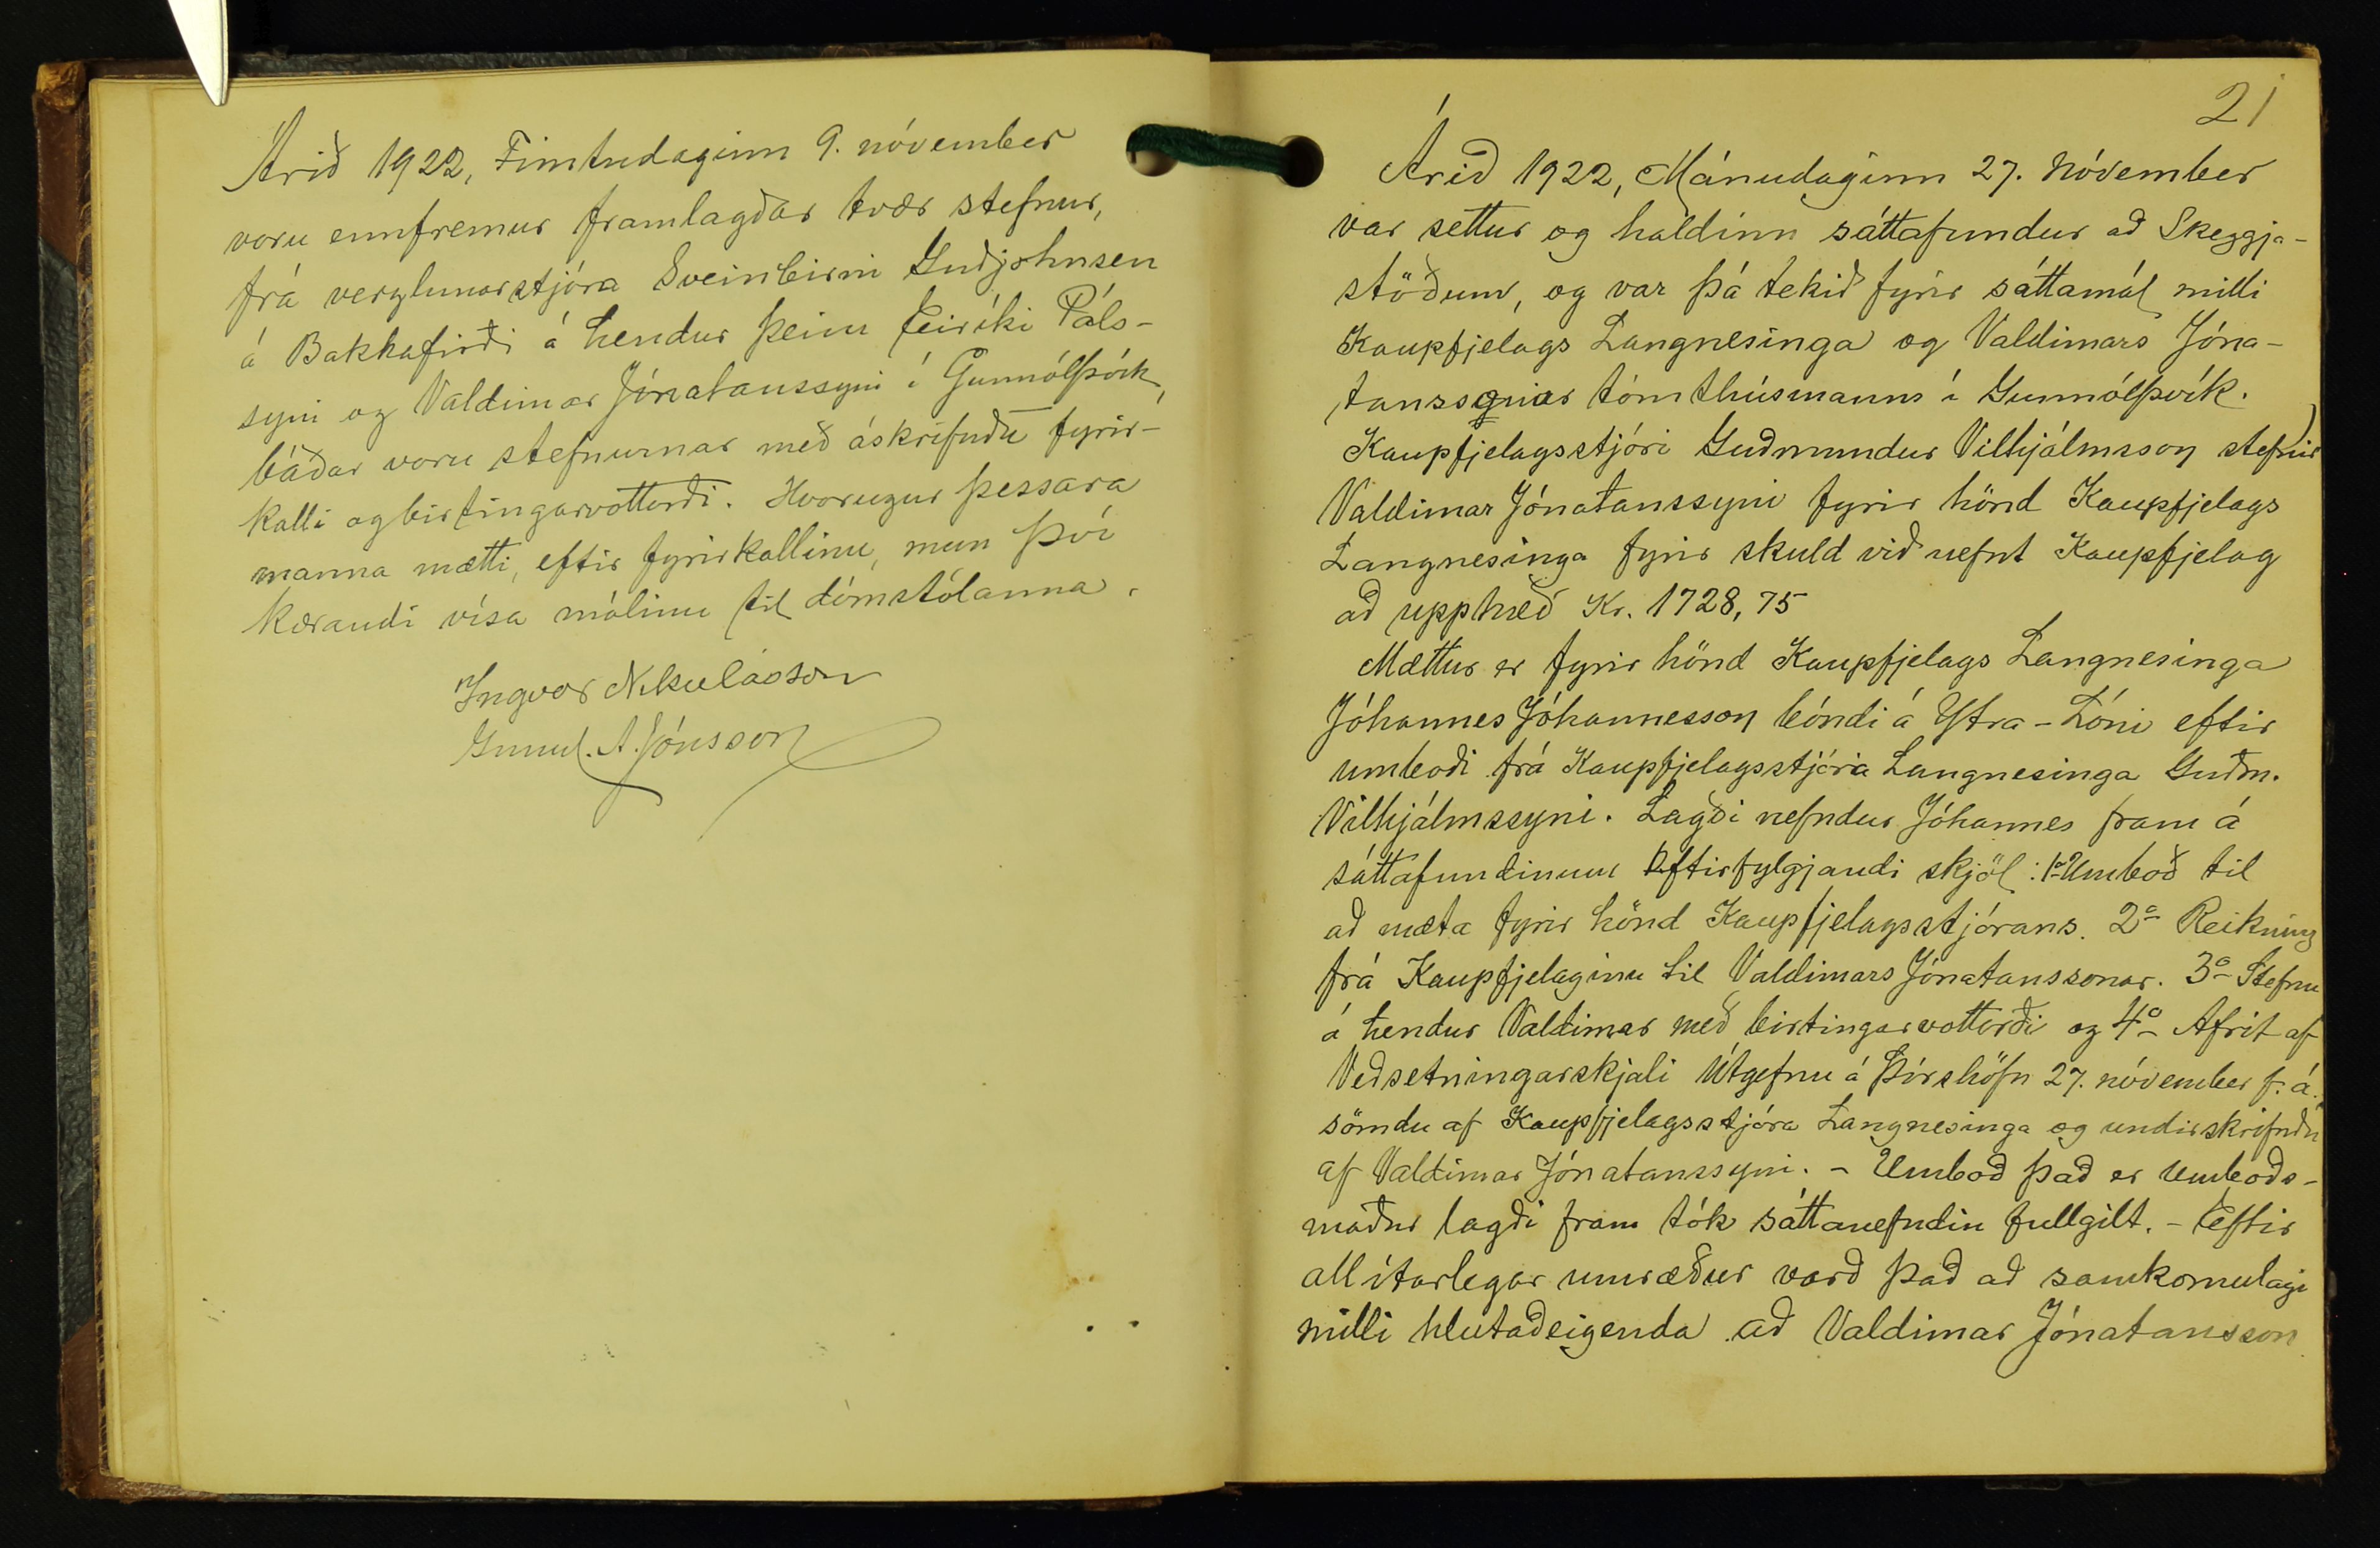 Árið 1922, Fimtudaginn 9. nóvember
voru ennfremur framlagðar tvær stefnur,
frá verzlunarstjóra Sveinbirni Guðjohnsen
á Bakkafirði á hendur þeim Eiríki Páls-
syni og Valdimar Jónatanssyni í Gunnólfsvík,
báðar voru stefnurnar með áskrifuðu fyrir-
kalli og birtingarvottorði. Hvorugur þessara
manna mætti, eftir fyrirkallinu, mun því
kærandi vísa málinu til dómstólanna.
Ingvar Nikulásson
Gunnl. A. Jónsson
21
Árið 1922, Mánudaginn 27. Nóvember
var settur og haldinn sáttafundur að Skeggja-
stöðum, og var þá tekið fyrir sáttamál milli
Kaupfjelags Langnesinga og Valdimars Jóna-
tanssonar tómthúsmanns í Gunnólfsvík.
Kaupfjelagsstjóri Guðmundur Vilhjálmsson stefnir
Valdimar Jónatanssyni fyrir hönd Kaupfjelags
Langnesinga fyrir skuld við nefnt Kaupfjelag
að upphæð Kr. 1728,75
Mættur er fyrir hönd Kaupfjelags Langnesinga
Jóhannes Jóhannesson bóndi á Ytra-Lóni eftir
umboði frá Kaupfjelagsstjóra Langnesinga Guðm.
Vilhjálmssyni. Lagði nefndur Jóhannes fram á
sáttafundinum eftirfylgjandi skjöl: 1o Umboð til
að mæta fyrir hönd Kaupfjelagsstjórans. 2o Reikning
frá Kaupfjelaginu til Valdimars Jónatanssonar. 3o Stefnu
á hendur Valdimar með birtingarvottorði og 4o Afrit af
Veðsetningarskjali Útgefnu á Þórshöfn 27. nóvember f. á.
sömdu af Kaupfjelagsstjóra Langnesinga og undirskrifuðu
af Valdimar Jónatanssyni. - Umboð það er Umboðs-
maður lagði fram tók sáttanefndin fullgilt. - Eftir
all ítarlegar umræður varð það að samkomulagi
milli hlutaðeigenda að Valdimar Jónatansson